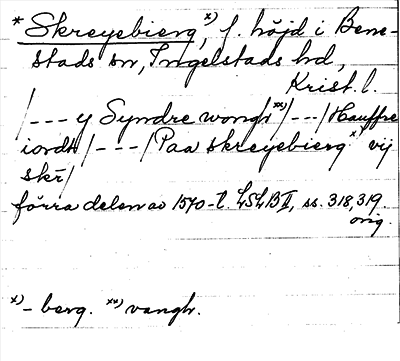 * Skreyebierg,ˣ⁾ f. höjd i Bene-
stads sn, Ingelstads hd,
Krist. l.
/--- y Syndre wongrˣˣ⁾/---/Hauffre
iordt/---/Paa skreyebiergˣ⁾ vij
skr̄/
förra delen av 1570-t. LSLB II, ss. 318, 319.
orig.
ˣ⁾- berg. ˣˣ⁾ vangr.